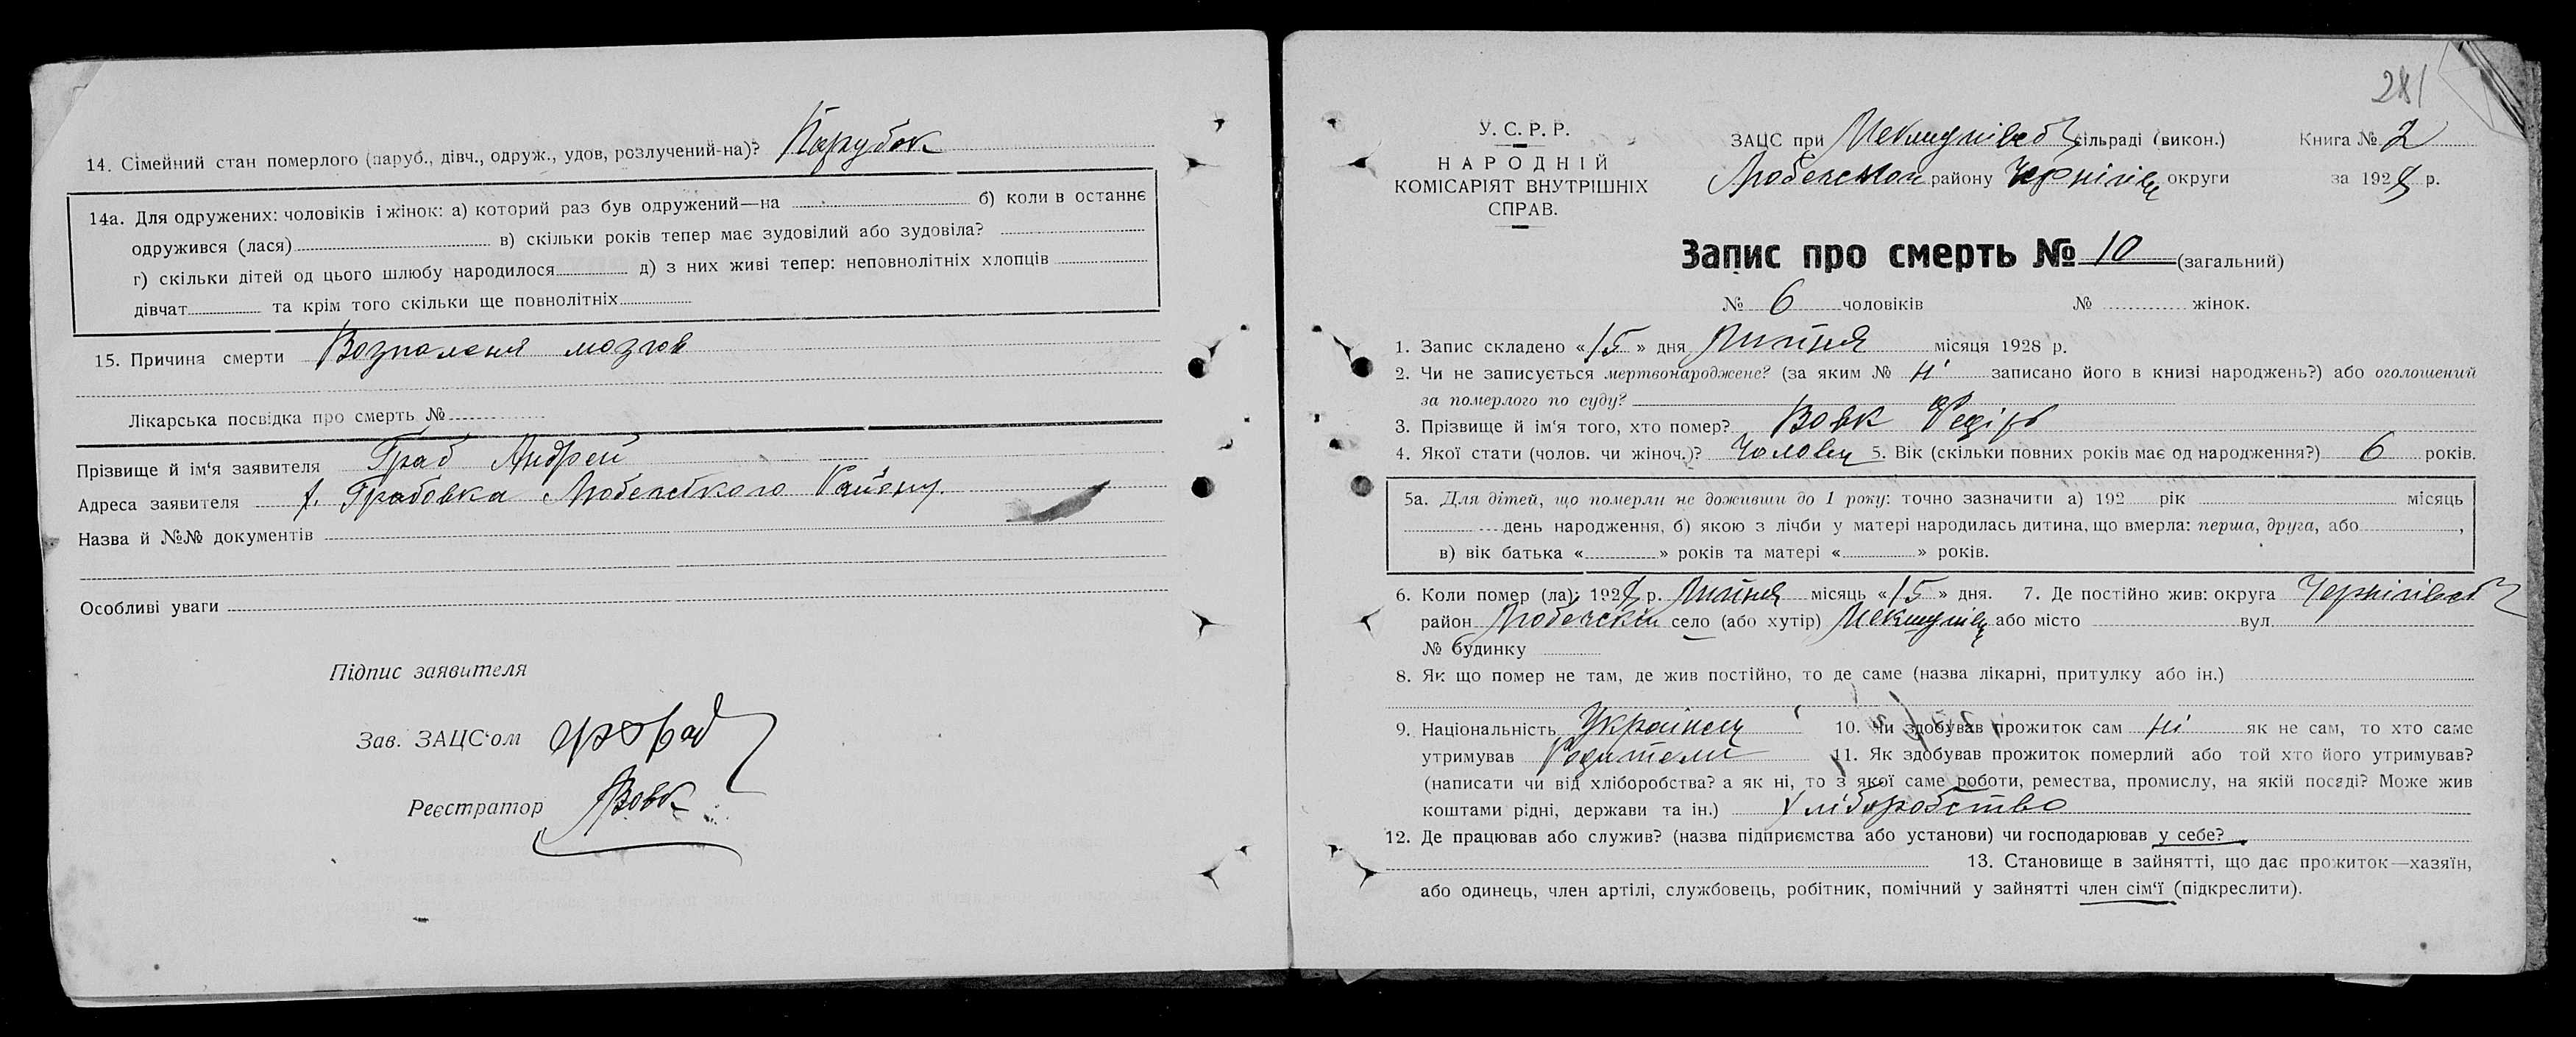 14. Сімейний стан померлого (паруб., дівч., одруж., удов, розлучений-на)? Парубок
14а. Для одружених: чоловіків і жінок: а) которий раз був одружений—на б) коли в останнє
одружився (лася) в) скільки років тепер має зудовілий або зудовіла?
г) скільки дітей од цього шлюбу народилося д) з них живі тепер: неповнолітніх хлопців
дівчат та крім того скільки ще повнолітніх
15. Причина смерти Возпаленя мозгов
Лікарська посвідка про смерть №
Прізвище й ім'я заявителя Граб Андрей
Адреса заявителя Грабовка Любечського Району.
Назва й №№ документів
Особливі уваги
Підпис заявителя
Зав. ЗАЦС'ом
Реєстратор Вовк
281
У. С. Р. Р.
НАРОДНІЙ
КОМІСАРІЯТ ВНУТРІШНІХ
СПРАВ.
ЗАЦС при сільраді (викон.) Книга № 2
району округи за 1928 р.
Запис про смерть № 10 (загальний)
№ 6 чоловіків № жінок.
1. Запис складено «15» дня Липня місяця 1928 р.
2. Чи не записується мертвонароджене? (за яким № ні записано його в книзі народжень?) або оголошений
за померлого по суду?
3. Прізвище й ім'я того, хто помер? Вовк Федір
4. Якої стати (чолов. чи жіноч.)? Чоловіч 5. Вік (скільки повних років має од народження?) 6 років.
5а. Для дітей, що померли не доживши до 1 року: точно зазначити а) 192 рік місяць
день народження, б) якою з лічби у матері народилась дитина, що вмерла: перша, друга, або ,
в) вік батька « » років та матері « » років.
6. Коли помер (ла): 1928 р. Липня місяць «15» дня. 7. Де постійно жив: округа
район село (або хутір) або місто вул.
№ будинку
8. Як що помер не там, де жив постійно, то де саме (назва лікарні, притулку або ін.)
9. Національність Українец 10. Чи здобував прожиток сам ні як не сам, то хто саме
утримував Родители 11. Як здобував прожиток померлий або той хто його утримував?
(написати чи від хліборобства? а як ні, то з якої саме роботи, ремества, промислу, на якій посаді? Може жив
коштами рідні, держави та ін.) Хліборобство
12. Де працював або служив? (назва підприємства або установи) чи господарював у себе?
13. Становище в зайнятті, що дає прожиток—хазяїн,
або одинець, член артілі, службовець, робітник, помічний у зайнятті член сім'ї (підкреслити).